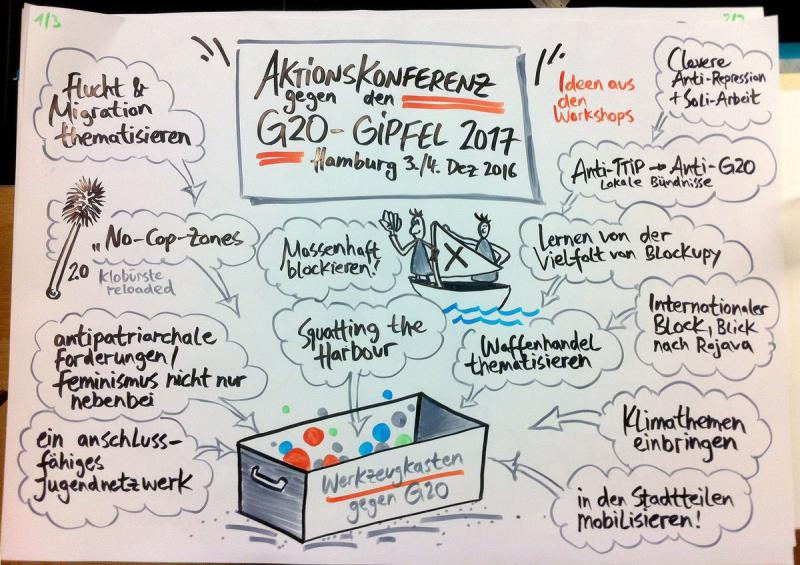 1/3
AKTIONSKONFERENZ
gegen den
G20-GIPFEL 2017
Hamburg 3./4. Dez 2016
Ideen aus
den
Workshops
Flucht &
Migration
thematisieren
Clevere
Anti-Repression
+ Soli-Arbeit
Anti-TTiP → Anti-G20
Lokale Bündnisse
„No-Cop-Zones
2.0
Klobürste
reloaded
Massenhaft
blockieren!
X
Lernen von der
Vielfalt von Blockupy
Squatting the
Harbour
Waffenhandel
thematisieren
Internationaler
Block, Blick
nach Rojava
antipatriarchale
Forderungen/
Feminismus nicht nur
nebenbei
ein anschluss-
fähiges
Jugendnetzwerk
Klimathemen
einbringen
in den Stadtteilen
mobilisieren!
Werkzeugkasten
gegen G20